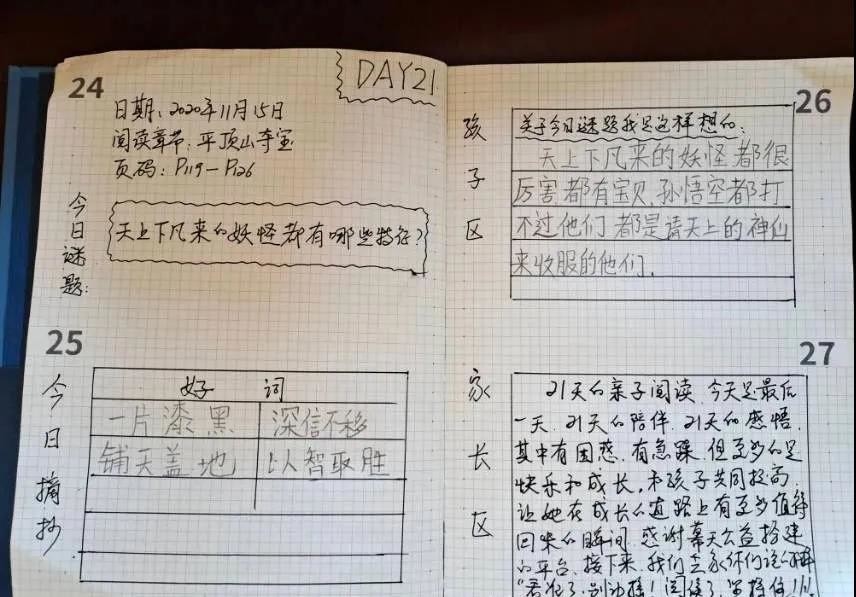 24
DAY21
日期：2020年11月15日
阅读章节：平顶山夺宝
页码：P119－P126
今日谜题：
天上下凡来的妖怪都有哪些特征？
25
今日摘抄
好 词
一片漆黑 深信不移
铺天盖地 以人智取胜
26
孩子区
关于今日谜题我是这样想的：
天上下凡来的妖怪都很
厉害都有宝贝，孙悟空都打
不过他们 都是请天上的神仙
来收服的他们．
27
家长区
21天的亲子阅读，今天是最后
一天，21天的陪伴，21天的感悟，
其中有困惑，有急躁，但更多的是
快乐和成长，和孩子共同提高，
让她在成长的道路上有更多值得
回味的瞬间，感谢幕天公益搭建
的平台，接下来，我们